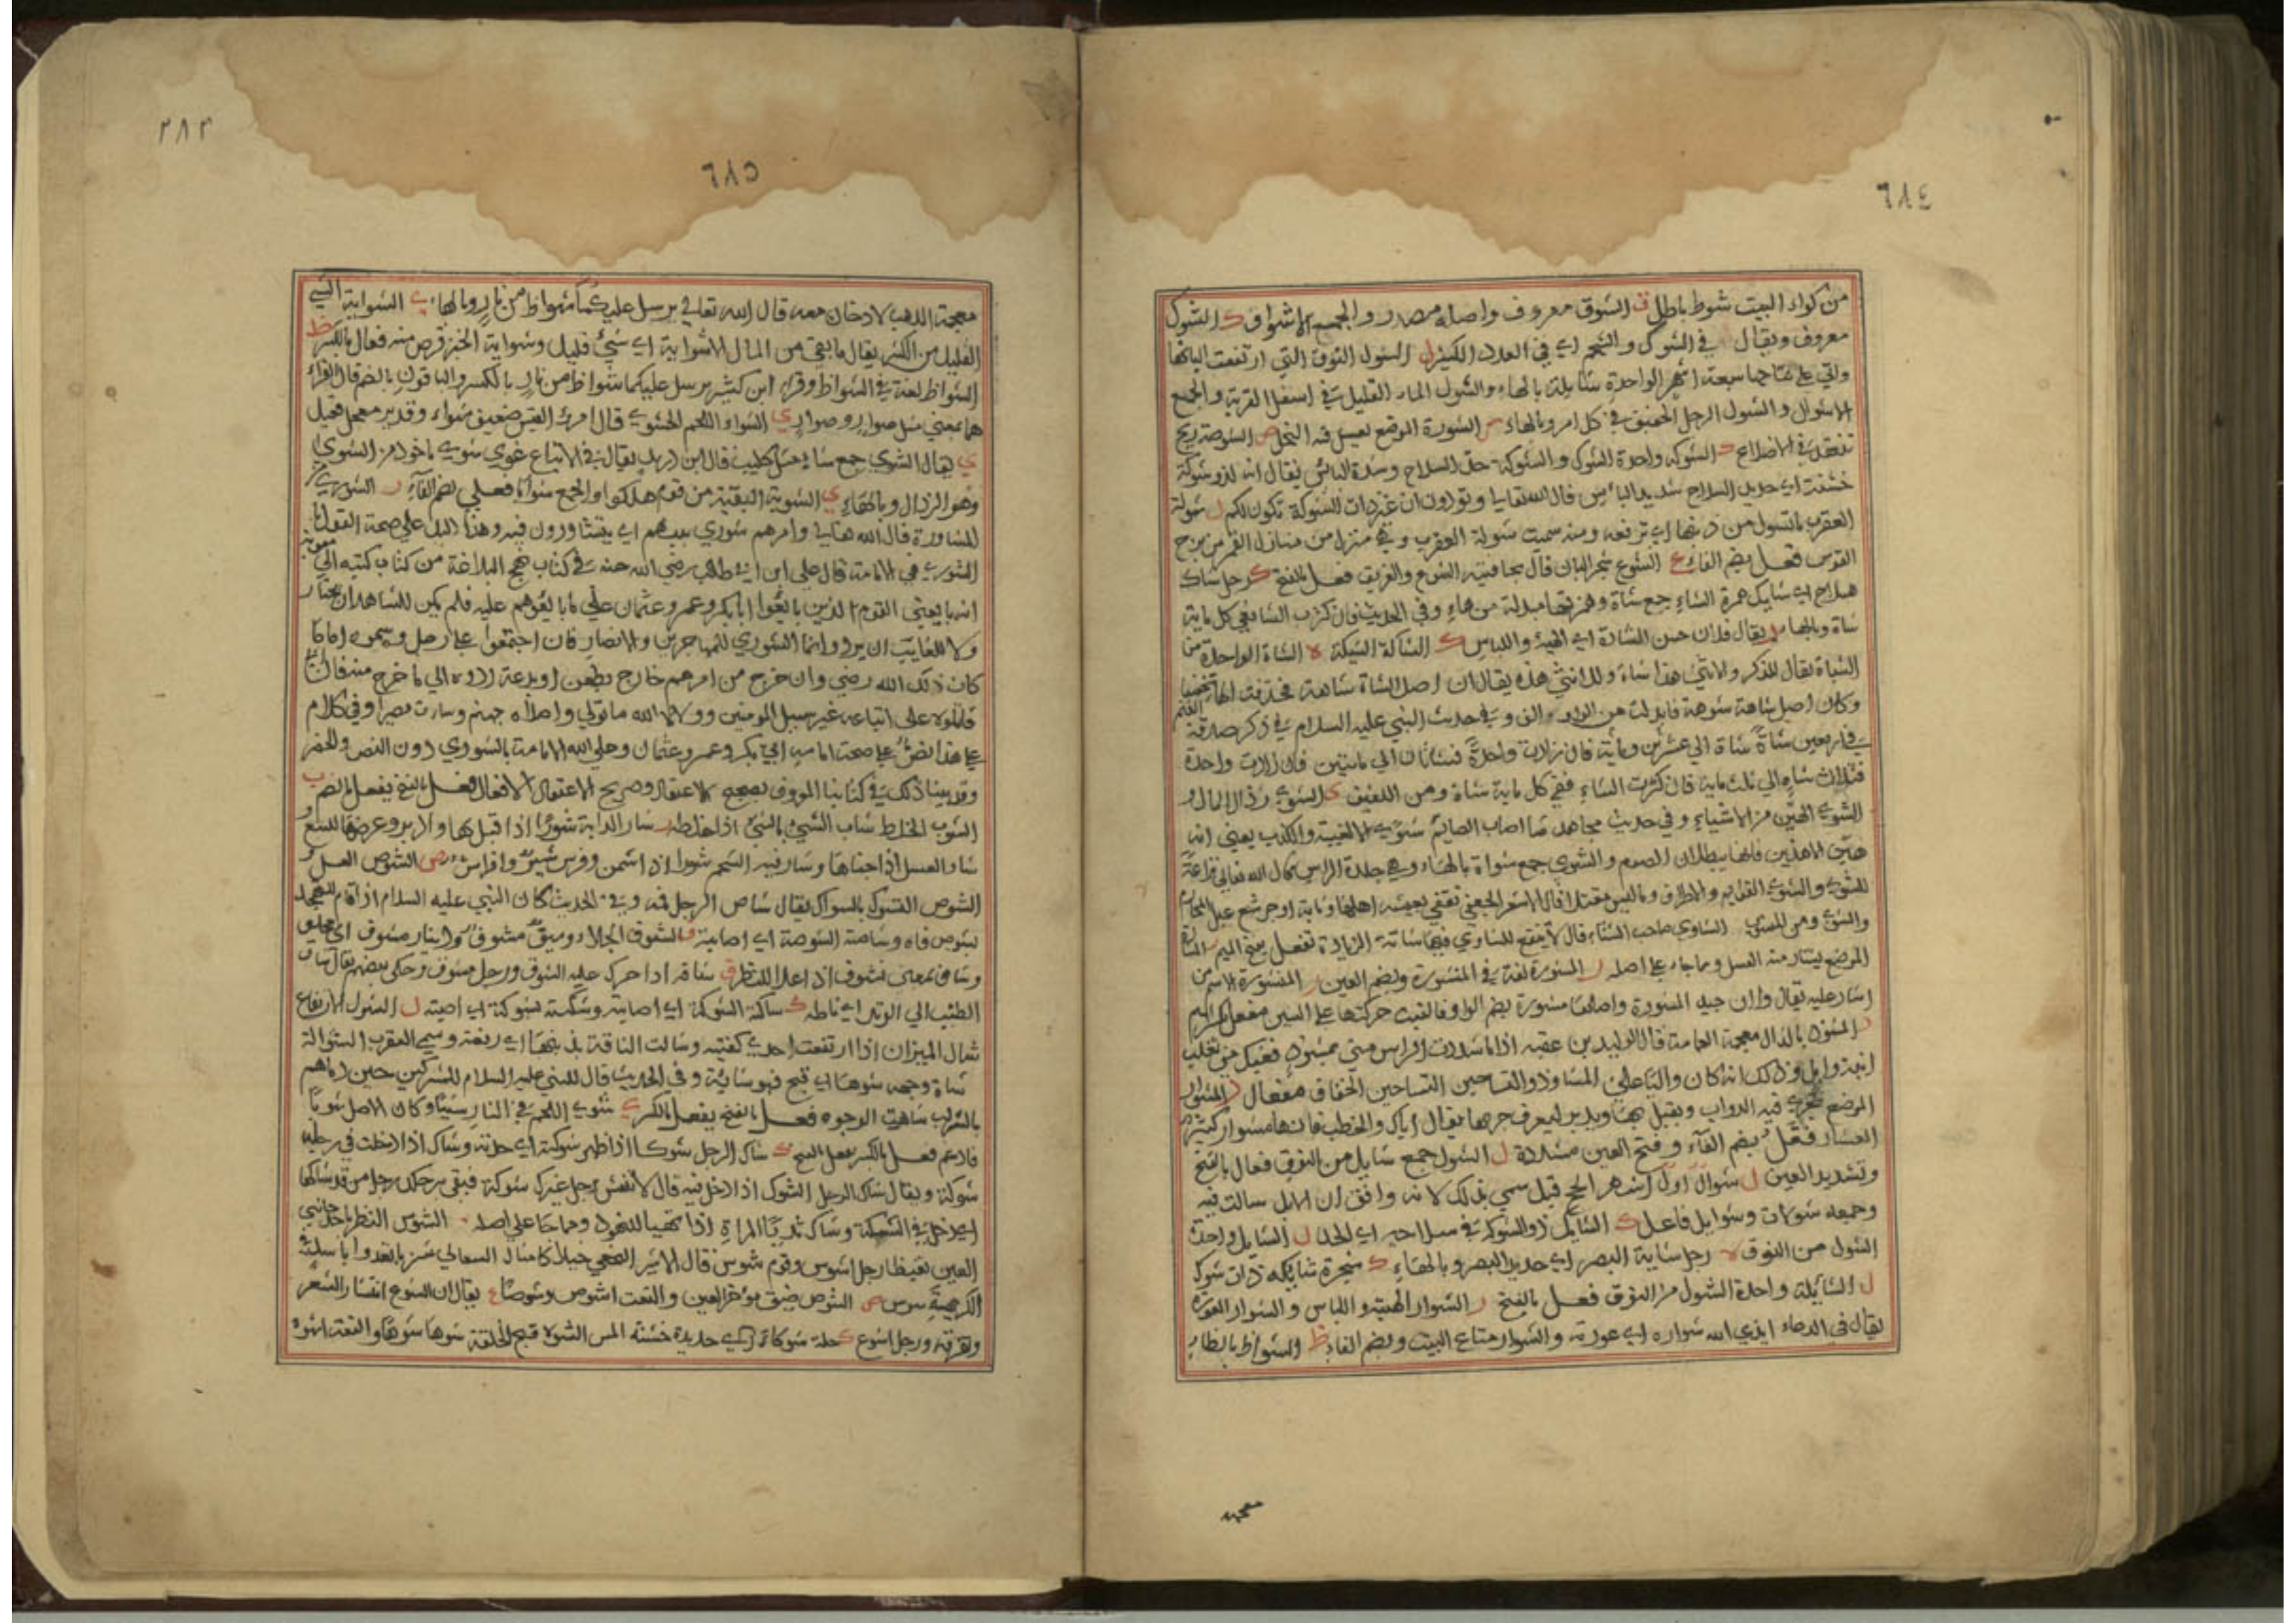 ٦٨٤
من كواء البيت شوط باطل ق الشوق معروف واصله مصدر والجمع الاشواق ك الشوك
معروف ويقال في الشوك والشجر اي في العدد الكثير ل الشول النوق التي ارتفعت البانها
واتي على نتاجها سبعة اشهر الواحدة شايلة بالهاء والشول الماء القليل في اسفل القربة والجمع
الاشوال والشول الرجل الخفيف في كل امر وبالهاء الشورة الموضع تعسل فيه النحل ص الشوصة ريح
تنعقد في الاضلاع ك الشوكة واحدة الشوك والشوكة حد السلاح وشدة الباس يقال انه لذو شوكة
خشنت اي حديد السلاح شديد الباس قال الله تعالى وتودون ان غير ذات الشوكة تكون لكم ل شولة
العقرب ما تشول من ذنبها اي ترفعه ومنه سميت شولة العقرب وهي منزل من منازل القمر من برج
القوس فعل بضم الفاء ع الشوع شجر البان قال بحافتيه الشوع والغريف فعل بالفتح ك رجل شاك
سلاح اي شايك همزة الشاء جمع شاة وهمزتها مبدلة من هاء وفي الحديث فان كثرت الشا ففي كل ماية
شاة وبالهاء يقال فلان حسن الشارة اي الهيئة واللباس ك الشاكة الشيكة ه الشاة الواحدة من
الشياة يقال للذكر والانثى هذا شاة وللانثى هذه يقال ان اصل الشاة شاهة فحذفت الهاء تخفيفا
وكان اصل شاهة شوهة فابدلت من الواو الف وفي حديث النبي عليه السلام في ذكر صدقة الغنم
في اربعين شاة شاة الي عشرين وماية فان زادت واحدة فشاتان الي ماتين فان زادت واحدة
فثلاث شياه الي ثلث ماية فان كثرت الشاء ففي كل ماية شاة ومن اللفيف ي الشوي رذال المال و
الشوي الهين من الاشياء وفي حديث مجاهد ما اصاب الصايم شوي الا الغيبة والكذب يعني انه
هين الا هذين فانهما يبطلان الصوم والشوي جمع شواة بالهاء وهي جلدة الراس قال الله تعالى نزاعة
للشوي والشوي القوايم والاطراف وما ليس مقتلا قال الاسعر الجعفي تقفي بعيشه اهلها وثابة او جرشع عبل المحازم
والشوي ومن المنسوب الشاوي صاحب الشاء قال لا ينفع للشاوي فيها شاته الزيادة مفعل بفتح الميم ر المشار
الموضع يشتار منه العسل وما جاء على اصله ر المشورة لغة في المشورة وبضم العين ر المشورة الاسم من
اشار عليه يقال وان جيد المشورة واصلها مشورة بضم الواو فالقيت حركتها على الشين مفعل بكسر الميم
ذ المشوذ بالذال معجمة العمامة قال الوليد بن عقبة اذا ما شددت الراس مني بمشوذ فغيك مني تغلب
ابنة وايل وذلك انه كان واليا على المشاوذ والتساخين التساخين الخفاف مفعال ر المشوار
الموضع تجري فيه الدواب ويقبل بها ويدبر ليعرف جريها يقال اياك والخطب فانها مشوار كثير
العثار فعل بضم الفاء وفتح العين مشددة ل الشول جمع شايل من النوق فعال بالفتح
وتشديد العين ل شوال اول اشهر الحج قيل سمي بذلك لانه وافق ان الابل سالت فيه
وجمعه شوالات وشوايل فاعل ك الشايك ذو الشوكة في سلاحه اي الحد ل الشايل واحد
الشول من النوق ه رجل شايه البصر اي حديد البصر وبالهاء ك شجرة شايكة ذات شوك
ل الشايلة واحدة الشول من النوق فعل بالفتح ر الشوار الهيئة واللباس والشوار العورة
يقال في الدعاء ابدي الله شواره اي عورته والشوار متاع البيت وبضم الفاء ظ الشواظ بالظاء
معجمة
٢٨٣
٦٨٥
معجمة اللهب لا دخان معه قال الله تعالى يرسل عليكما شواظ من نار وبالهاء ي الشواية الشي
القليل من الكثير يقال ما بقي من المال الا شواية اي شيء قليل وشواية الخبز قرص منه فعال بالكسر ظ
الشواظ لغة في الشواظ وقرا ابن كثير يرسل عليكما شواظ من نار بالكسر والباقون بالضم قال الفراء
هما بمعني مثل صوار وصوار ي الشواء اللحم المشوي قال امرؤ القيس صفيف شواء او قدير معجل فعيل
ي يقال الشوي جمع شاء مثل كليب قال ابن دريد يقال في الاتباع غوي شوي ماخوذ من الشوي
وهو الرذال وبالهاء ي الشوية البقية من قوم هلكوا والجمع شوايا فعلي بضم الفاء ر الشوري من
المشاورة قال الله تعالى وامرهم شوري بينهم اي يتشاورون فيه وهذا الدليل على صحة القول بان
الشوري هي الامامة قال علي ابن ابي طالب رضي الله عنه في كتاب نهج البلاغة من كتاب كتبه الي معوية
انه بايعني القوم الذين بايعوا ابا بكر وعمر وعثمان علي ما بايعوهم عليه فلم يكن للشاهد ان يختار
ولا للغايب ان يرد وانما الشوري للمهاجرين والانصار فان اجتمعوا علي رجل وسموه اماما
كان ذلك لله رضي وان خرج من امرهم خارج بطعن او بدعة ردوه الي ما خرج منه فان ابي
قاتلوه علي اتباعه غير سبيل المومنين وولاه الله ما تولي واصلاه جهنم وساءت مصيرا وفي كلام
علي هذا نص علي صحة امامة ابي بكر وعمر وعثمان وعلي الامامة بالشوري دون النص والحصر
وقد بينا ذلك في كتابنا المعروف بصحيح الاعتقاد وصريح الاعتقاد الافعال فعل بالفتح يفعل بالضم ب
الشوب الخلط شاب الشيء بالشيء اذا خلطه ر شار الدابة شورا اذا اقبل بها وادبر وعرضها للبيع و
شار العسل اذا اجتناها وشار فيه الشحم شورا اذا سمن وفرس شير وافراس ص الشوص الغسل و
الشوص التسوك بالسواك يقال شاص الرجل فيه وفي الحديث كان النبي عليه السلام اذا قام للتهجد
يشوص فاه وشاصته الشوصة اي اصابته ف الشوف الجلاء وسيف مشوف ودينار مشوف اي مجلو
وشاف بمعني تشوف اذا علا للنظر ق شاقه اذا حرك عليه الشوق ورجل مشوق وحكي بعضهم يقال شاق
الطنب الي الوتد اي ناطه ك شاكته الشوكة اي اصابته وشكته بشوكة اي اصبته ل الشول الارتفاع
شال الميزان اذا ارتفعت احدي كفتيه وشالت الناقة بذنبها اي رفعته وسمي العقرب الشوالة
شاه وجهه شوها اي قبح فهو شايه وفي الحديث قال للنبي عليه السلام للمشركين حين رماهم
بالتراب شاهت الوجوه فعل بالفتح يفعل بالكسر ي شوي اللحم في النار شيا وكان الاصل شويا
فادغم فعل بالكسر يفعل بالفتح ك شاك الرجل شوكا اذا ظهر شوكته اي حدته وشاك اذا دخلت في رجله
شوكة ويقال شاك الرجل الشوك اذا دخل فيه قال لا تنقش برجل غيرك شوكة فتبقي برجلك رجل من قد شاكها
اي دخل في الشوكة وشاك ثديا المراة اذا تهيا للنهود وجا علي اصله الشوس النظر باحد جانبي
العين تغيظا رجل اشوس وقوم شوس قال الاشتر النخعي خيلا كامثال السعالي شزبا تغدوا ببيض في
الكريهة شوس ص الشوص ضيق مؤخر العين والنعت اشوص وشوصا ع يقال ان الشوع انتشار الشعر
وتفرقه ورجل اشوع ك حلة شوكاء اي جديدة خشنة المس الشوه قبح الخلقة شوها شوها والنعت اشوه